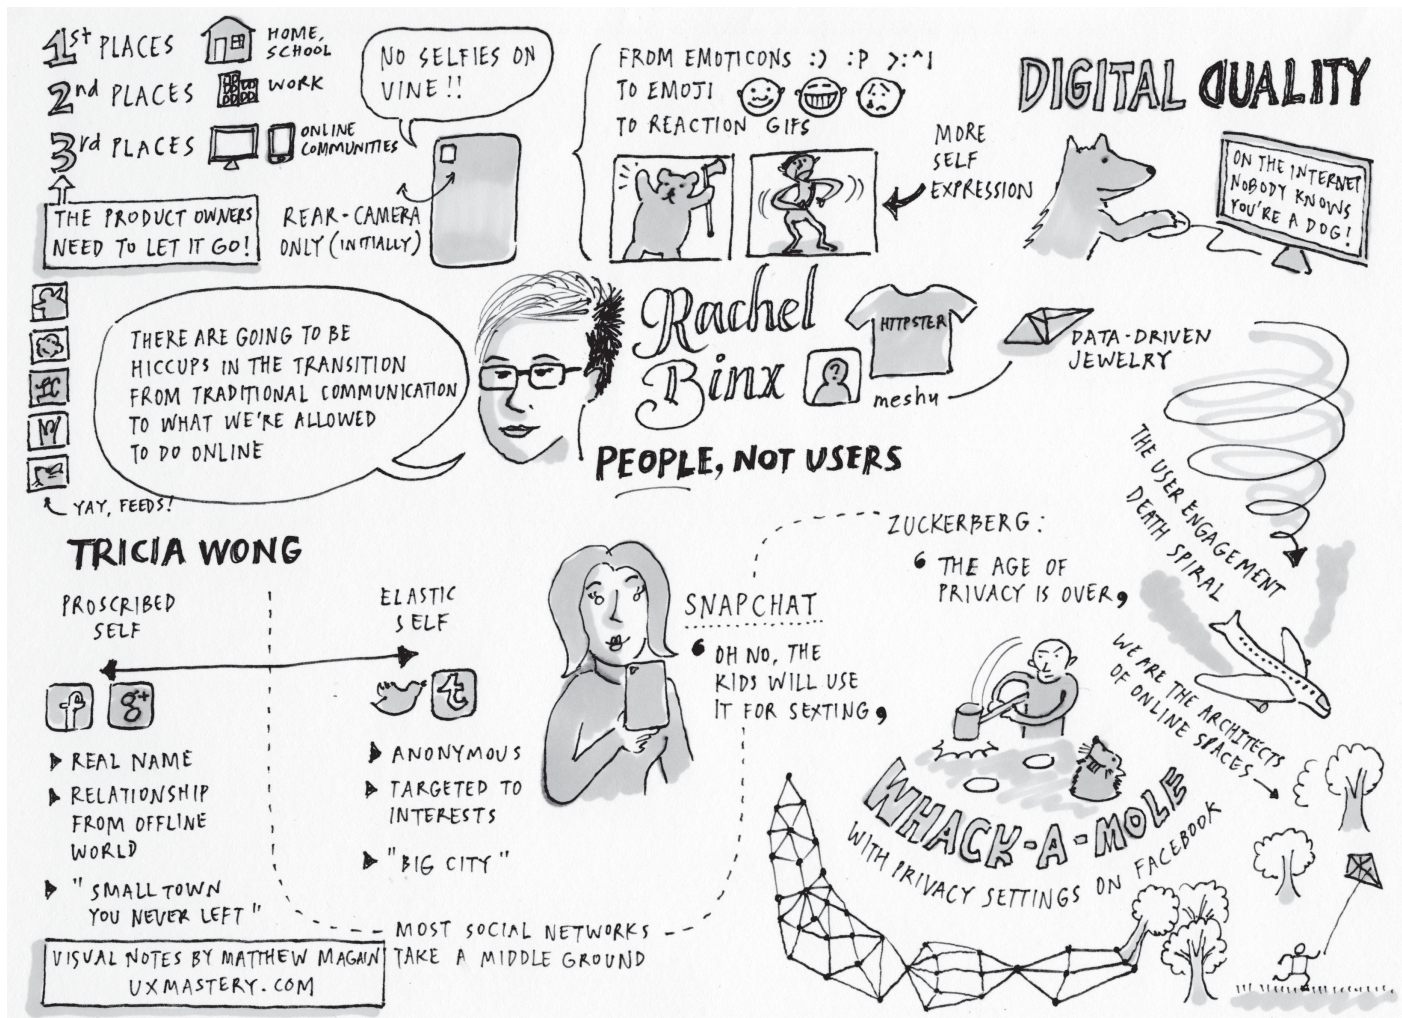 1st PLACES
HOME,
SCHOOL
2nd PLACES
WORK
3rd PLACES
ONLINE
COMMUNITIES
THE PRODUCT OWNERS
NEED TO LET IT GO!
NO SELFIES ON
VINE!!
REAR-CAMERA
ONLY (INITIALLY)
FROM EMOTICONS :) :P >:^|
TO EMOJI
TO REACTION GIFS
MORE
SELF
EXPRESSION
DIGITAL DUALITY
ON THE INTERNET
NOBODY KNOWS
YOU'RE A DOG!
THERE ARE GOING TO BE
HICCUPS IN THE TRANSITION
FROM TRADITIONAL COMMUNICATION
TO WHAT WE'RE ALLOWED
TO DO ONLINE
YAY, FEEDS!
Rachel
Binx
?
HTTPSTER
meshu
DATA-DRIVEN
JEWELRY
PEOPLE, NOT USERS
THE USER ENGAGEMENT
DEATH SPIRAL
TRICIA WONG
PROSCRIBED
SELF
ELASTIC
SELF
f
g+
t
REAL NAME
RELATIONSHIP
FROM OFFLINE
WORLD
"SMALL TOWN
YOU NEVER LEFT"
ANONYMOUS
TARGETED TO
INTERESTS
"BIG CITY"
MOST SOCIAL NETWORKS
TAKE A MIDDLE GROUND
SNAPCHAT
'OH NO, THE
KIDS WILL USE
IT FOR SEXTING'
ZUCKERBERG:
'THE AGE OF
PRIVACY IS OVER'
WHACK-A-MOLE
WITH PRIVACY SETTINGS ON FACEBOOK
WE ARE THE ARCHITECTS
OF ONLINE SPACES
VISUAL NOTES BY MATTHEW MAGAIN
UXMASTERY.COM